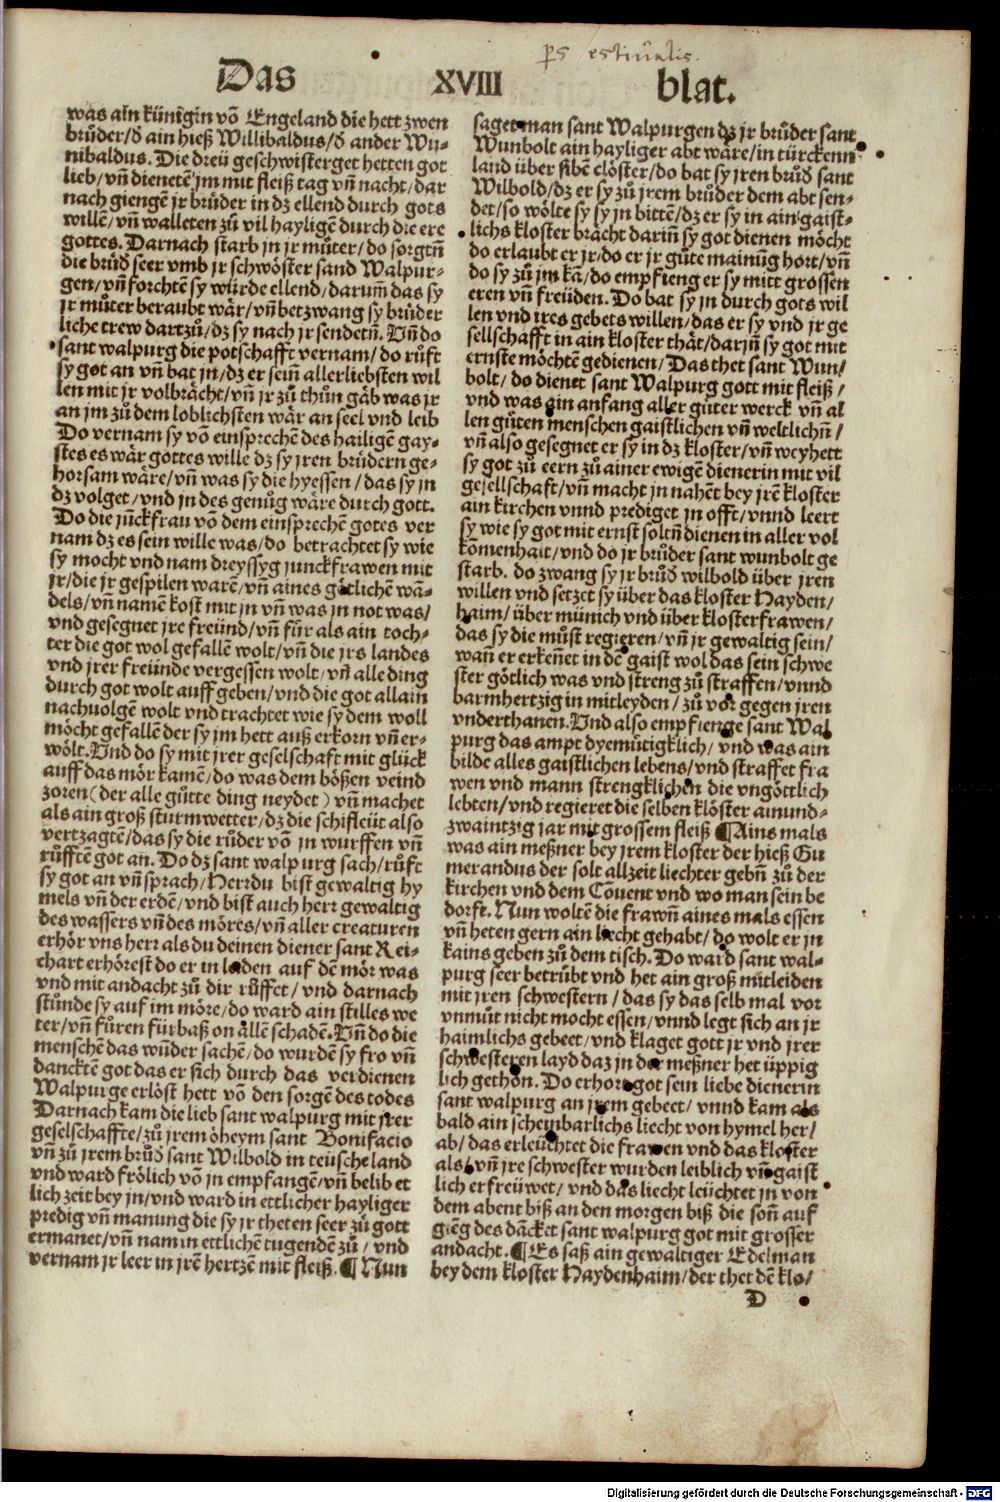 ps estiualis.
Das XVIII blat.
was ain künigin võ Engeland die hett zwen
brůder/ð ain hieß Willibaldus/ð ander Wu-
nibaldus. Die dreü geschwisterget hetten got
lieb/vñ dienetẽ jm mit fleiß tag vñ nacht/dar
nach giengẽ jr brůder in dz ellend durch gots
willẽ/vñ walleten zů vil hayligẽ durch die ere
gottes. Darnach starb in jr můter/do sorgtñ
die brůð seer vmb jr schwöster sand Walpur-
gen/vñ forchtẽ sy würde ellend/darum̃ das sy
jr můter beraubt wär/vñ betzwang sy brůder
liche trew dartzů/dz sy nach jr sendetñ. Vñ do
sant walpurg die potschafft vernam/do růft
sy got an vñ bat jn/dz er sein̄ allerliebsten wil
len mit jr volbrächt/vñ jr zů thůn gäb was jr
an jm zů dem loblichsten wär an seel vnd leib
Do vernam sy võ einsprechẽ des hailigẽ gay-
stes es wär gottes wille dz sy jren brüdern ge-
horsam wäre/vñ was sy die hyessen/das sy jn
dz volget/vnd jn des genůg wäre durch gott.
Do die jũckfrau võ dem einsprechẽ gotes ver
nam dz es sein wille was/do betrachtet sy wie
sy mocht vnd nam dreyssyg junckfrawen mit
jr/die jr gespilen warẽ/vñ aines götlichẽ wã-
dels/vñ namẽ kost mit jn vñ was jn not was/
vnd gesegnet jre freünd/vñ für als ain toch-
ter die got wol gefallẽ wolt/vñ die jrs landes
vnd jrer freünde vergessen wolt/vñ alle ding
durch got wolt auff geben/vnd die got allain
nachuolgẽ wolt vnd trachtet wie sy dem woll
möcht gefallẽ der sy jm hett auß erkorn vñ er-
wölt. Vnd do sy mit jrer geselschaft mit glück
auff das mör kamẽ/do was dem bößen veind
zoren (der alle gůtte ding neydet) vñ machet
als ain groß sturmwetter/dz die schifleüt also
vertzagtẽ/das sy die růder võ jn wurffen vñ
růfftẽ got an. Do dz sant walpurg sach/růft
sy got an vñ sprach/Herr du bist gewaltig hy
mels vñ der erdẽ/vnd bist auch herr gewaltig
des wassers vñ des mŏres/vñ aller creaturen
erhör vns herr als du deinen diener sant Rei-
chart erhörest do er in laden auf dẽ mör was
vnd mit andacht zů dir růffet/vnd darnach
stůnde sy auf im möre/do ward ain stilles we
ter/vñ fůren fürbaß on allẽ schadẽ. Vñ do die
menschẽ das wũder sachẽ/do wurdẽ sy fro vñ
dancktẽ got das er sich durch das verdienen
Walpurge erlöst hett võ den sorgẽ des todes
Darnach kam die lieb sant walpurg mit jrer
geselschaffte/zů jrem öheym sant Bonifacio
vñ zů jrem brůð sant Wilbold in teüsche land
vnd ward frölich võ jn empfangẽ/vñ belib et
lich zeit bey jn/vnd ward in ettlicher hayliger
predig vñ manung die sy jr theten seer zů gott
ermanet/vñ nam in ettlichẽ tugendẽ zů/vnd
vernam jr leer in jrẽ hertzẽ mit fleiß. ¶ Nun
saget man sant Walpurgen dz jr brůder sant
Wunbolt ain hayliger abt wäre/in türckenn
land über sibẽ clöster/do bat sy jren brůð sant
Wilbold/dz er sy zů jrem brůder dem abt sen-
det/so wölte sy sy jn bittẽ/dz er sy in ain gaist-
lichs kloster brächt darin̄ sy got dienen möcht
do erlaubt er jr/do er jr gůte mainũg hort/vñ
do sy zů jm kã/do empfieng er sy mitt grossen
eren vñ freüden. Do bat sy jn durch gots wil
len vnd jres gebets willen/das er sy vnd jr ge
sellschafft in ain kloster thät/darjñ sy got mit
ernste möchtẽ gedienen/Das thet sant Wun/
bolt/do dienet sant Walpurg gott mit fleiß/
vnd was ain anfang aller gůter werck vñ al
len gůten menschen gaistlichen vñ weltlichñ/
vñ also gesegnet er sy in dz kloster/vñ weyhett
sy got zů eern zů ainer ewigẽ dienerin mit vil
gesellschaft/vñ macht jn nahẽt bey jrẽ kloster
ain kirchen vnnd prediget jn offt/vnnd leert
sy wie sy got mit ernst soltñ dienen in aller vol
kõmenhait/vnd do jr brůder sant wunbolt ge
starb. do zwang sy jr brůð wilbold über jren
willen vnd setzet sy über das kloster Hayden/
haim/über münich vnd über klosterfrawen/
das sy die můst regieren/vñ jr gewaltig sein/
wañ er erkeñet in dẽ gaist wol das sein schwe
ster götlich was vnd streng zů straffen/vnnd
barmhertzig in mitleyden/zů vor gegen jren
vnderthanen. Vnd also empfienge sant Wal
purg das ampt dyemütigklich/vnd was ain
bilde alles gaistlichen lebens/vnd straffet fra
wen vnd mann strengklichen die vngöttlich
lebten/vnd regieret die selben klöster ainund-
zwaintzig jar mit grossem fleiß ¶ Ains mals
was ain meßner bey jrem kloster der hieß Gu
merandus der solt allzeit liechter gebñ zů der
kirchen vnd dem Cõuent vnd wo man sein be
dorft. Nun woltẽ die frawñ aines mals essen
vñ heten gern ain liecht gehabt/do wolt er jn
kains geben zů dem tisch. Do ward sant wal-
purg seer betrübt vnd het ain groß mitleiden
mit jren schwestern/das sy das selb mal vor
vnmůt nicht mocht essen/vnnd legt sich an jr
haimlichs gebeet/vnd klaget gott jr vnd jrer
schwesteren layd daz jn der meßner het üppig
lich gethon. Do erhort got sein liebe dienerin
sant walpurg an jrem gebeet/vnnd kam als
bald ain scheinbarlichs liecht von hymel her/
ab/das erleüchtet die frawen vnd das kloster
als/vñ jre schwester wurden leiblich vñ gaist
lich erfreüwet/vnd das liecht leüchtet jn von
dem abent biß an den morgen biß die soñ auf
giẽg des dãcket sant walpurg got mit grosser
andacht. ¶ Es saß ain gewaltiger Edelman
bey dem kloster Haydenhaim/der thet dẽ klo/
D
Digitalisierung gefördert durch die Deutsche Forschungsgemeinschaft - DFG